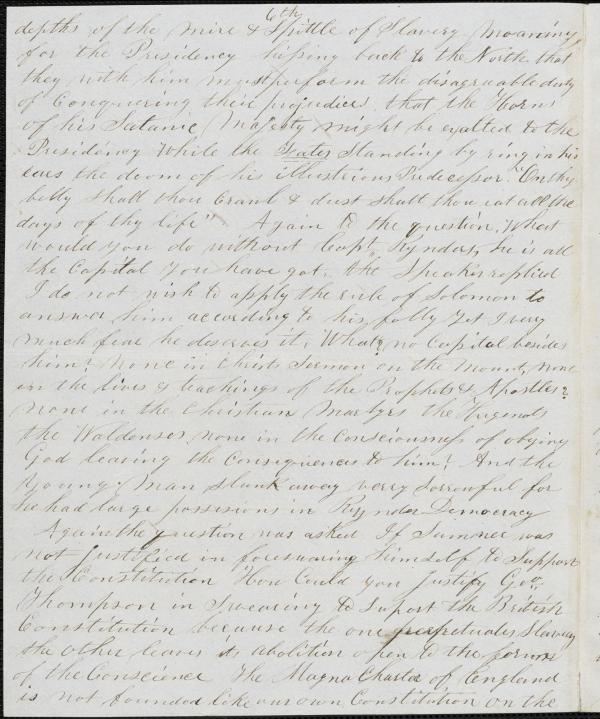 6th
depths of the mire & Spittle of Slavery moaning
for the Presidency hissing back to the North that
they with him must perform the disagreeable duty
of Conquering their prejudices that the Horns
of his Satanic Majesty might be exalted to the
Presidency While the Fates Standing by ring in his
ears the doom of his illustrious Predecessor. "On thy
belly shall thou Crawl & dust shall thou eat all the
days of thy life" Again to the question, What
would you do without Capt Rynders, he is all
the Capital you have got. the Speaker replied
I do not wish to apply the rule of Solomon to
answer him according to his folly Yet I very
much fear he deserves it, What? no Capital besides
him? None in Christs Sermon on the Mount, none
in the lives & teachings of the Prophets & Apostles?
none in the Christian Martyrs the Hugenots
the Waldenses none in the Consciousness of obeying
God leaving the Consequences to him? And the
Young Man slunk away very sorrowful for
he had large possesions in Rynder Democracy
Again the question was asked If Sumner was
not justified in foreswaring himself to Support
the Constitution How Could you justify Geo.
Thompson in Swearing to Suport the British
Constitution because the one perpetuates Slavery
the other leaves its abolition open to the
of the Conscience The Magna Charta of England
is not founded like our own Constitution on the